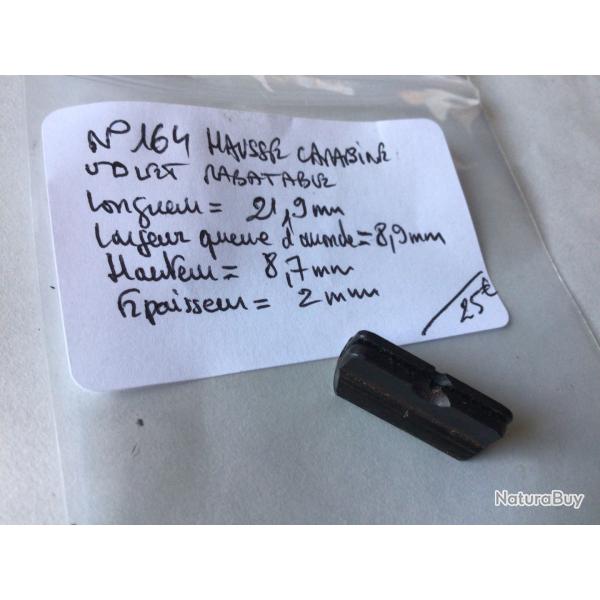 N° 164 HAUSSE CARABINE
VOLET RABATABLE
Longueur = 21,9 mm
Largeur queue d'aronde = 8,9 mm
Hauteur = 8,7 mm
Epaisseur = 2 mm
25€
NaturaBuy